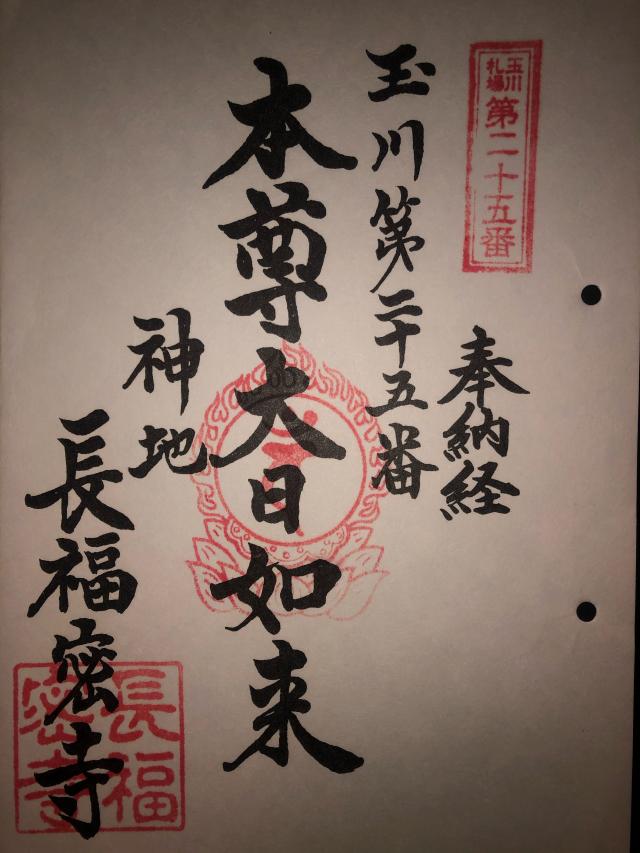 玉川
札場
第二十五番
奉納経
玉川第二十五番
本尊大日如来
神地
長福密寺
長福
密寺